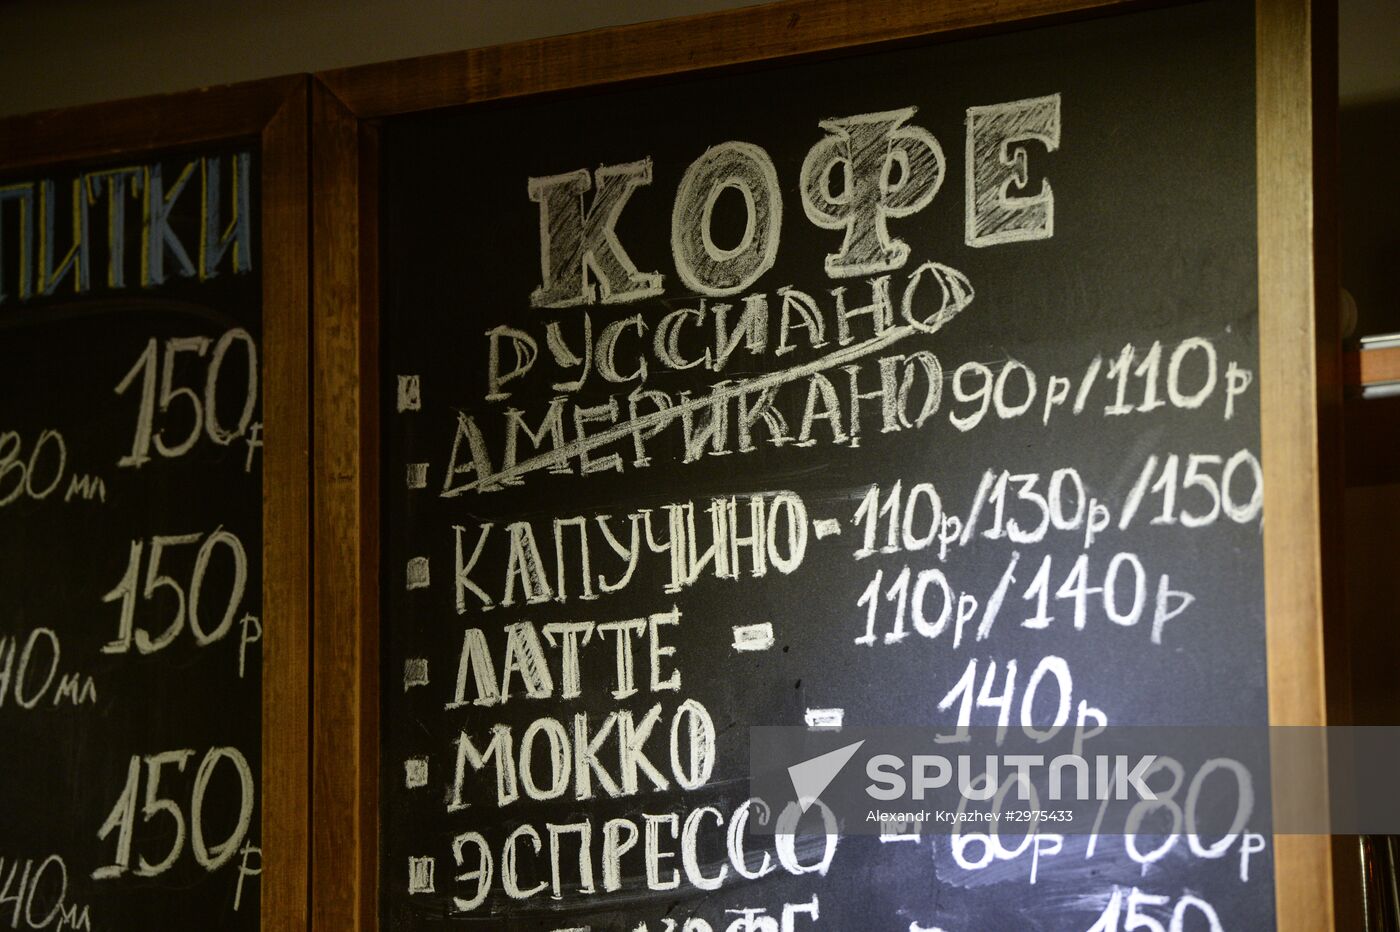 КОФЕ
РУССИАНО
АМЕРИКАНО 90р/110р
КАПУЧИНО - 110р/130р/150
ЛАТТЕ - 110р/140р
МОККО - 140р
ЭСПРЕССО - 60р/80р
КОФЕ - 150
ПИТКИ
150р
80 мл
150р
40 мл
150р
40 мл
SPUTNIK
Alexandr Kryazhev #2975433